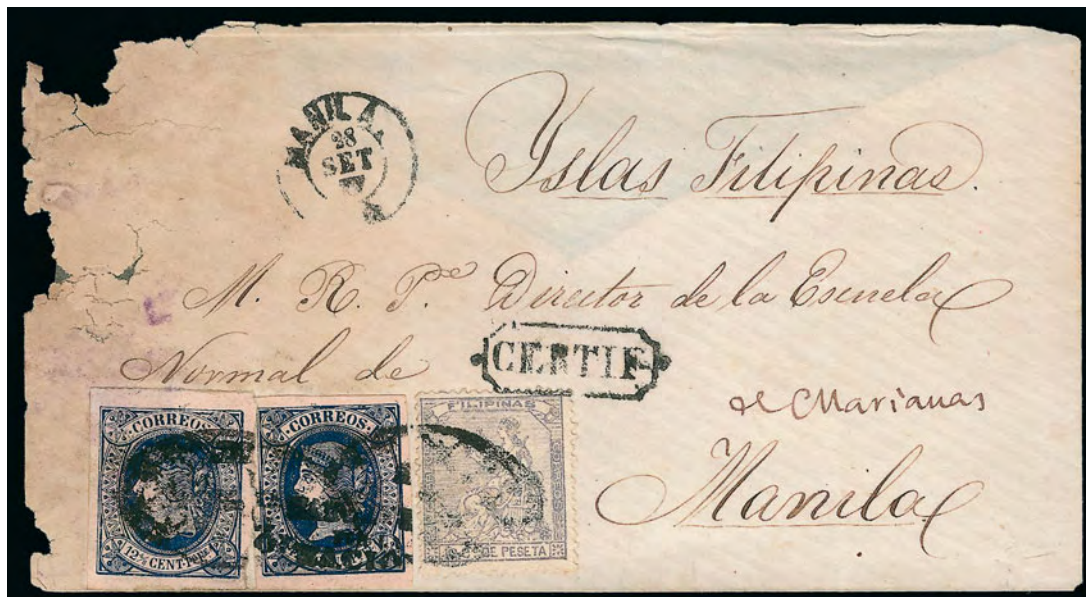 MANILA
28
SET
Yslas Filipinas.
M. R. P.e Director de la Escuela
Normal de
CERTIF
de Marianas
Manila
CORREOS
12 4/8 CENT. PESO
CORREOS
FILIPINAS
DE PESETA